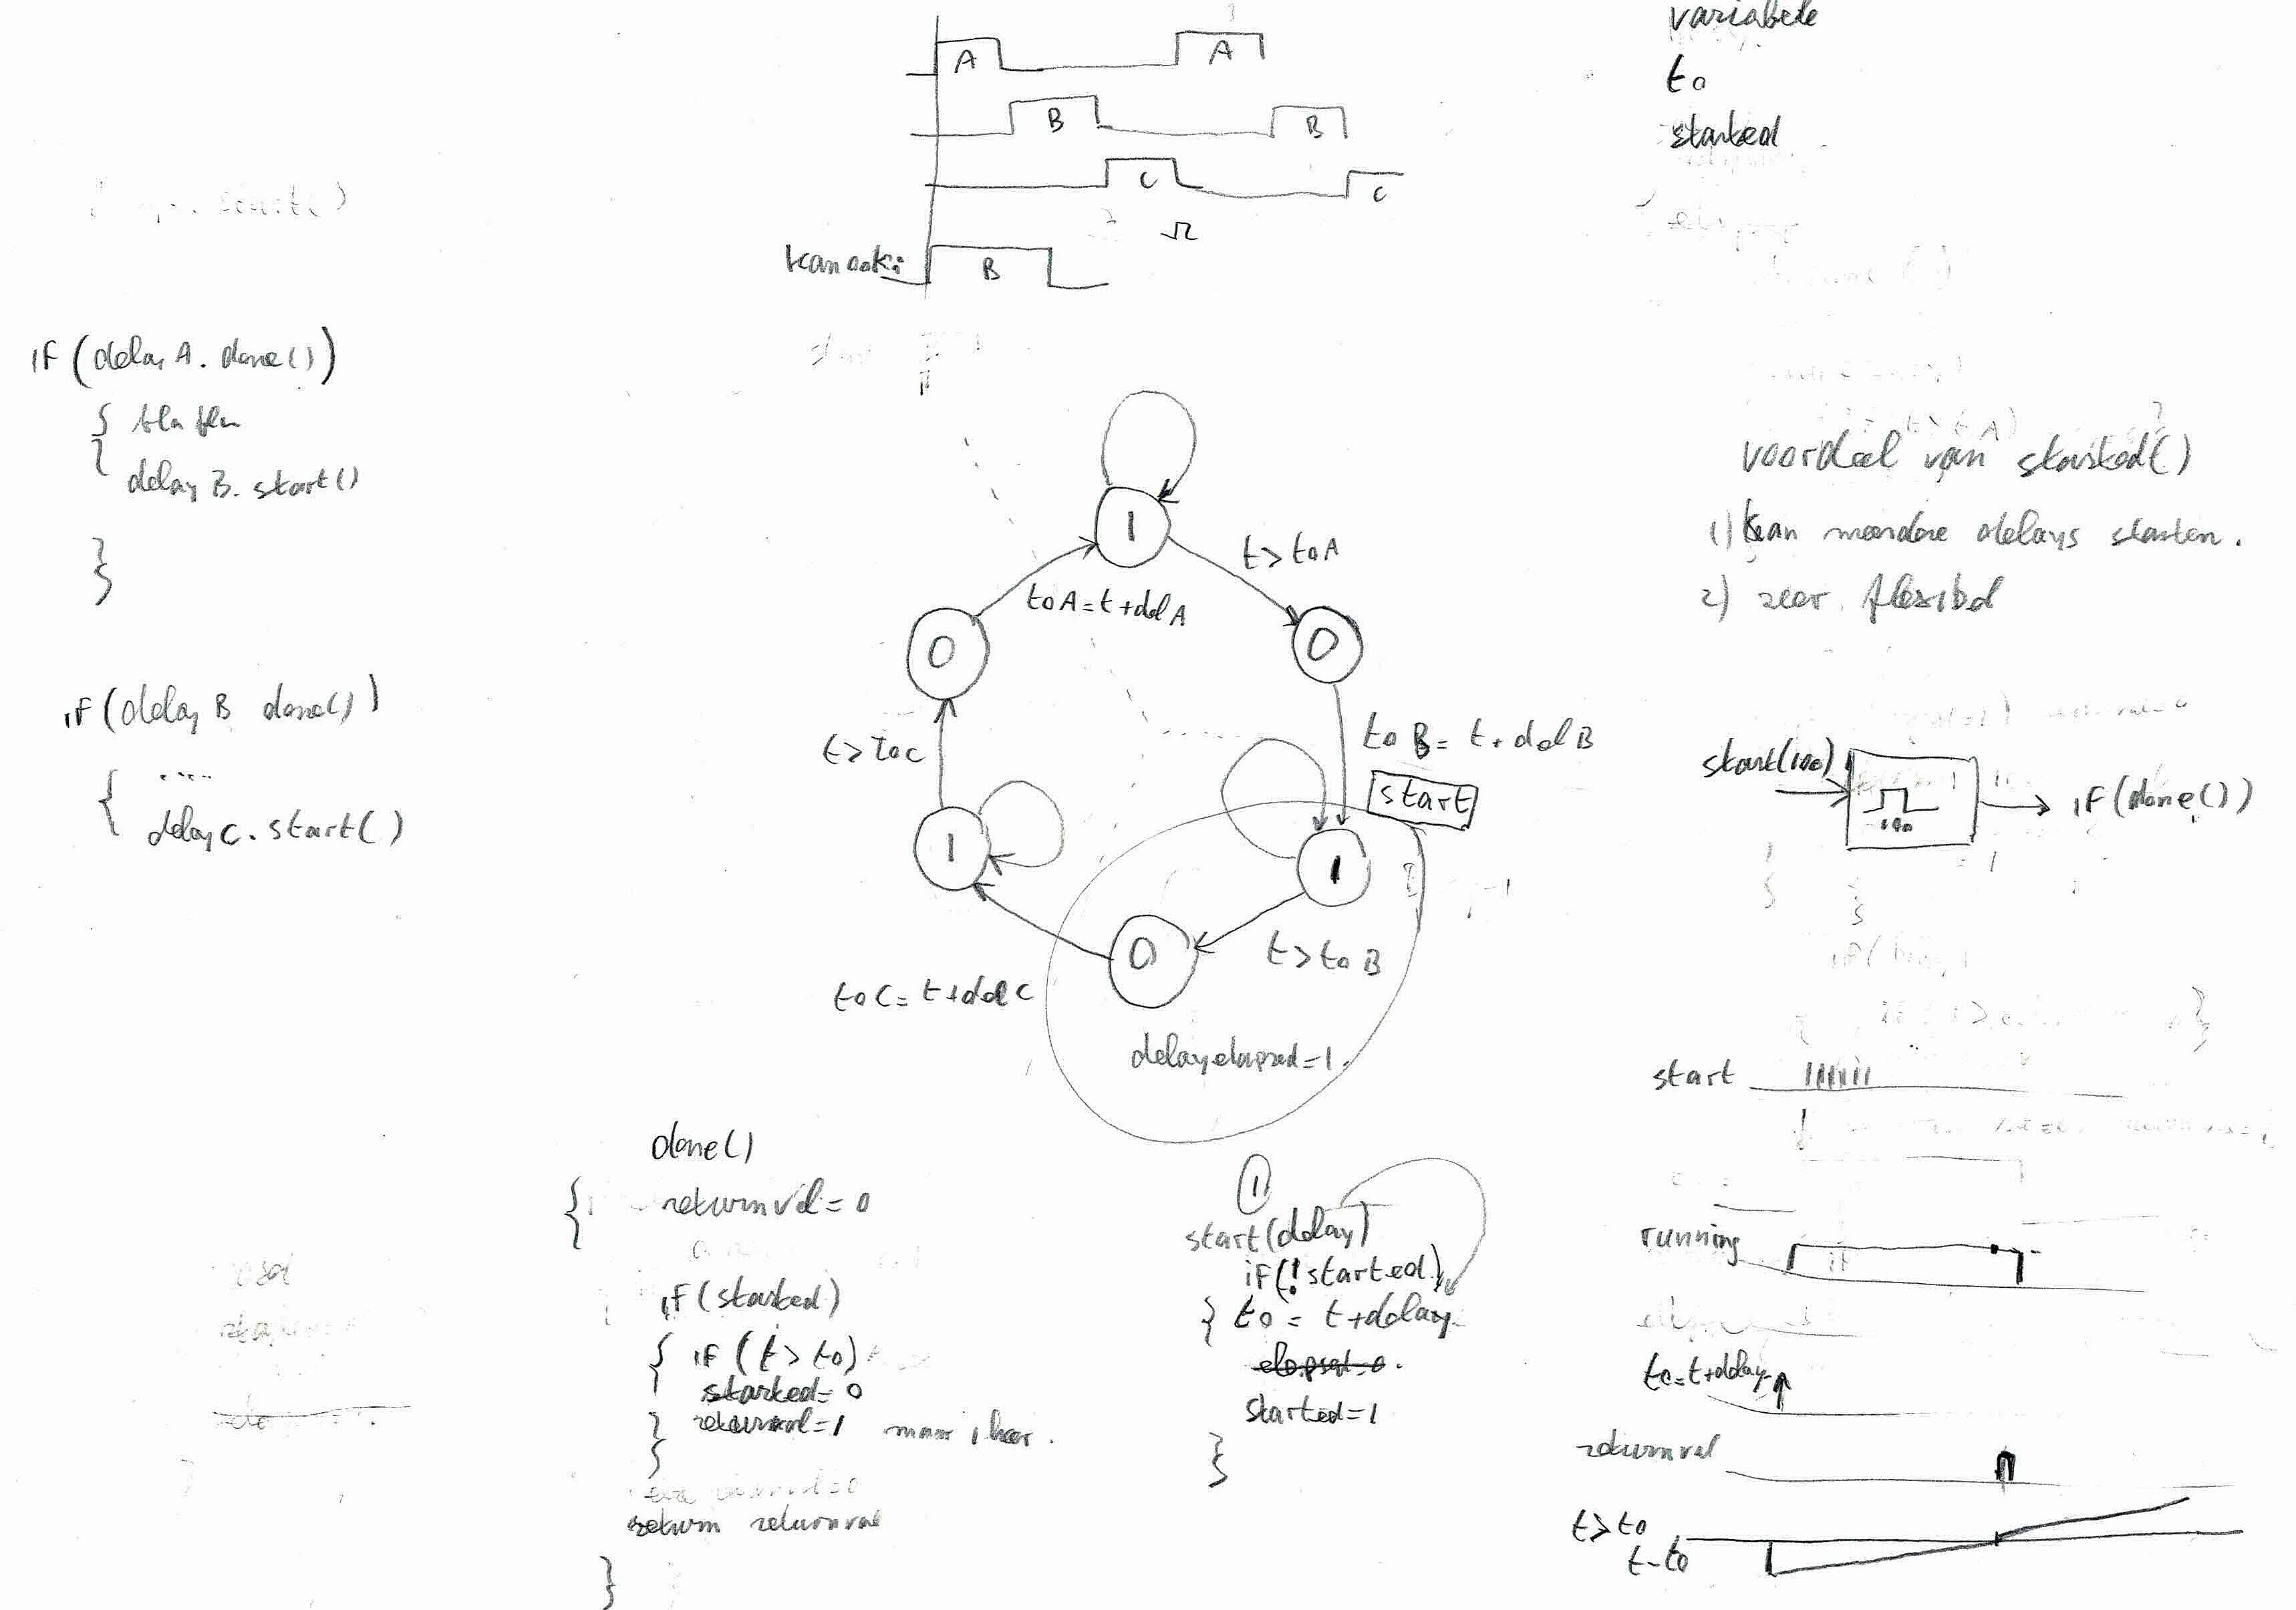 A
A
B
B
C
C
kan ook:
B
variabele
t0
started
if (delay A. done())
{
delay B. start()
}
if (delay B done())
{ ....
delay C. start()
1
t > t0A
t0A = t + del A
0
0
t0 B = t + del B
start
t > t0C
1
1
0
t > t0 B
t0 C = t + del C
delay elapsed = 1.
voordeel van started()
1) kan meerdere delays starten.
2) zeer flexibel
start(100)
100
if (done())
start
running
t0 = t + delay
returnval
t > t0
t - t0
done()
{ returnval = 0
if (started)
{ if (t > t0)
started = 0
} returnval = 1 maar 1 keer.
}
return returnval
}
1
start(delay)
if (! started)
{ t0 = t + delay
elapsed = 0.
started = 1
}